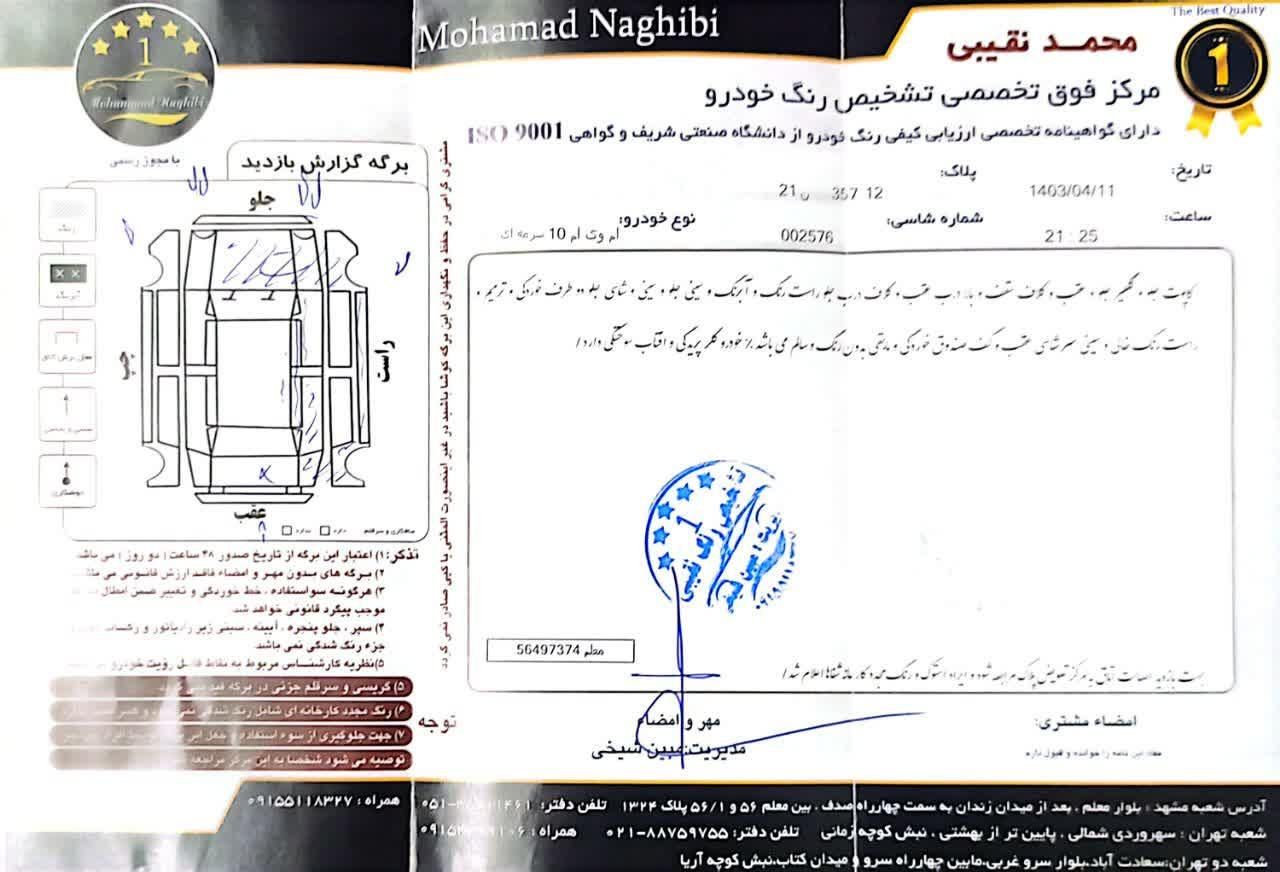 The Best Quality
Mohamad Naghibi
محمد نقیبی
1
Mohammad Naghibi
مرکز فوق تخصصی تشخیص رنگ خودرو
دارای گواهینامه تخصصی ارزیابی کیفی رنگ خودرو از دانشگاه صنعتی شریف و گواهی ISO 9001
تاریخ: 1403/04/11
پلاک: 12 357 ن 21
ساعت: 21 : 25
شماره شاسی: 002576
نوع خودرو: ام وی ام 10 سرمه ای
کاپوت جلو و گلگیر جلو و عقب و کلاف سقف و بالا درب عقب و کلاف درب جلو راست رنگ و آبرنگ و سینی جلو و سینی و شاسی جلو دو طرف خوردگی و ترمیم و
راست رنگ خالی و سینی سر شاسی عقب و کف صندوق خوردگی و مابقی بدون رنگ و سالم می باشد ٪ خودرو کلر پریدگی و افتاب سوختگی دارد /
معلم 56497374
جهت بازدید اصالت اتاق به مرکز تعویض پلاک مراجعه شود و ایراد استوک و رنگ مجدد کارخانه شفاها اعلام شد /
مهر و امضاء
مدیریت: مبین شیخی
امضاء مشتری:
مفاد این نامه را خوانده و قبول دارم
با مجوز رسمی
برگه گزارش بازدید
جلو
چپ
راست
عقب
رنگ
آبرنگ
دارد
ندارد
تذکر: ۱) اعتبار این برگه از تاریخ صدور ۴۸ ساعت ( دو روز ) می باشد
۲) برگه های بدون مهر و امضاء فاقد ارزش قانونی می
۳) هرگونه سواستفاده ، خط خوردگی و تغییر ضمن ابطال
موجب پیگرد قانونی خواهد شد
۴) سپر ، جلو پنجره ، آیینه ، سینی زیر رادیاتور و رکاب
جزء رنگ شدگی نمی باشد
۵) نظریه کارشناس مربوط به نقاط قابل رؤیت خودرو
توجه
۵) گریسی و سرقلم جزئی در برگه قید نمی گردد
۶) رنگ مجدد کارخانه ای شامل رنگ شدگی
۷) جهت جلوگیری از سوء استفاده و جعل این
توصیه می شود شخصا به این مرکز مراجعه
مشتری گرامی در حفظ و نگهداری این برگه کوشا باشید در غیر اینصورت المثنی یا کپی صادر نمی گردد
آدرس شعبه مشهد : بلوار معلم ، بعد از میدان زندان به سمت چهارراه صدف ، بین معلم ۵۶ و ۵۶/۱ پلاک ۱۳۲۴ تلفن دفتر:
همراه : ۰۹۱۵۵۱۱۸۳۲۷
شعبه تهران : سهروردی شمالی ، پایین تر از بهشتی ، نبش کوچه زمانی تلفن دفتر: ۰۲۱-۸۸۷۵۹۷۵۵ همراه :
شعبه دو تهران:سعادت آباد،بلوار سرو غربی،مابین چهارراه سرو و میدان کتاب،نبش کوچه آریا